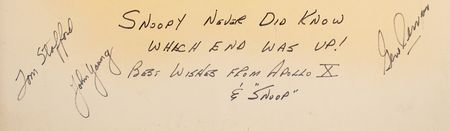 SNOOPY NEVER DID KNOW
WHICH END WAS UP!
BEST WISHES FROM APOLLO X
& "SNOOP"
Tom Stafford
John Young
Gene Cernan